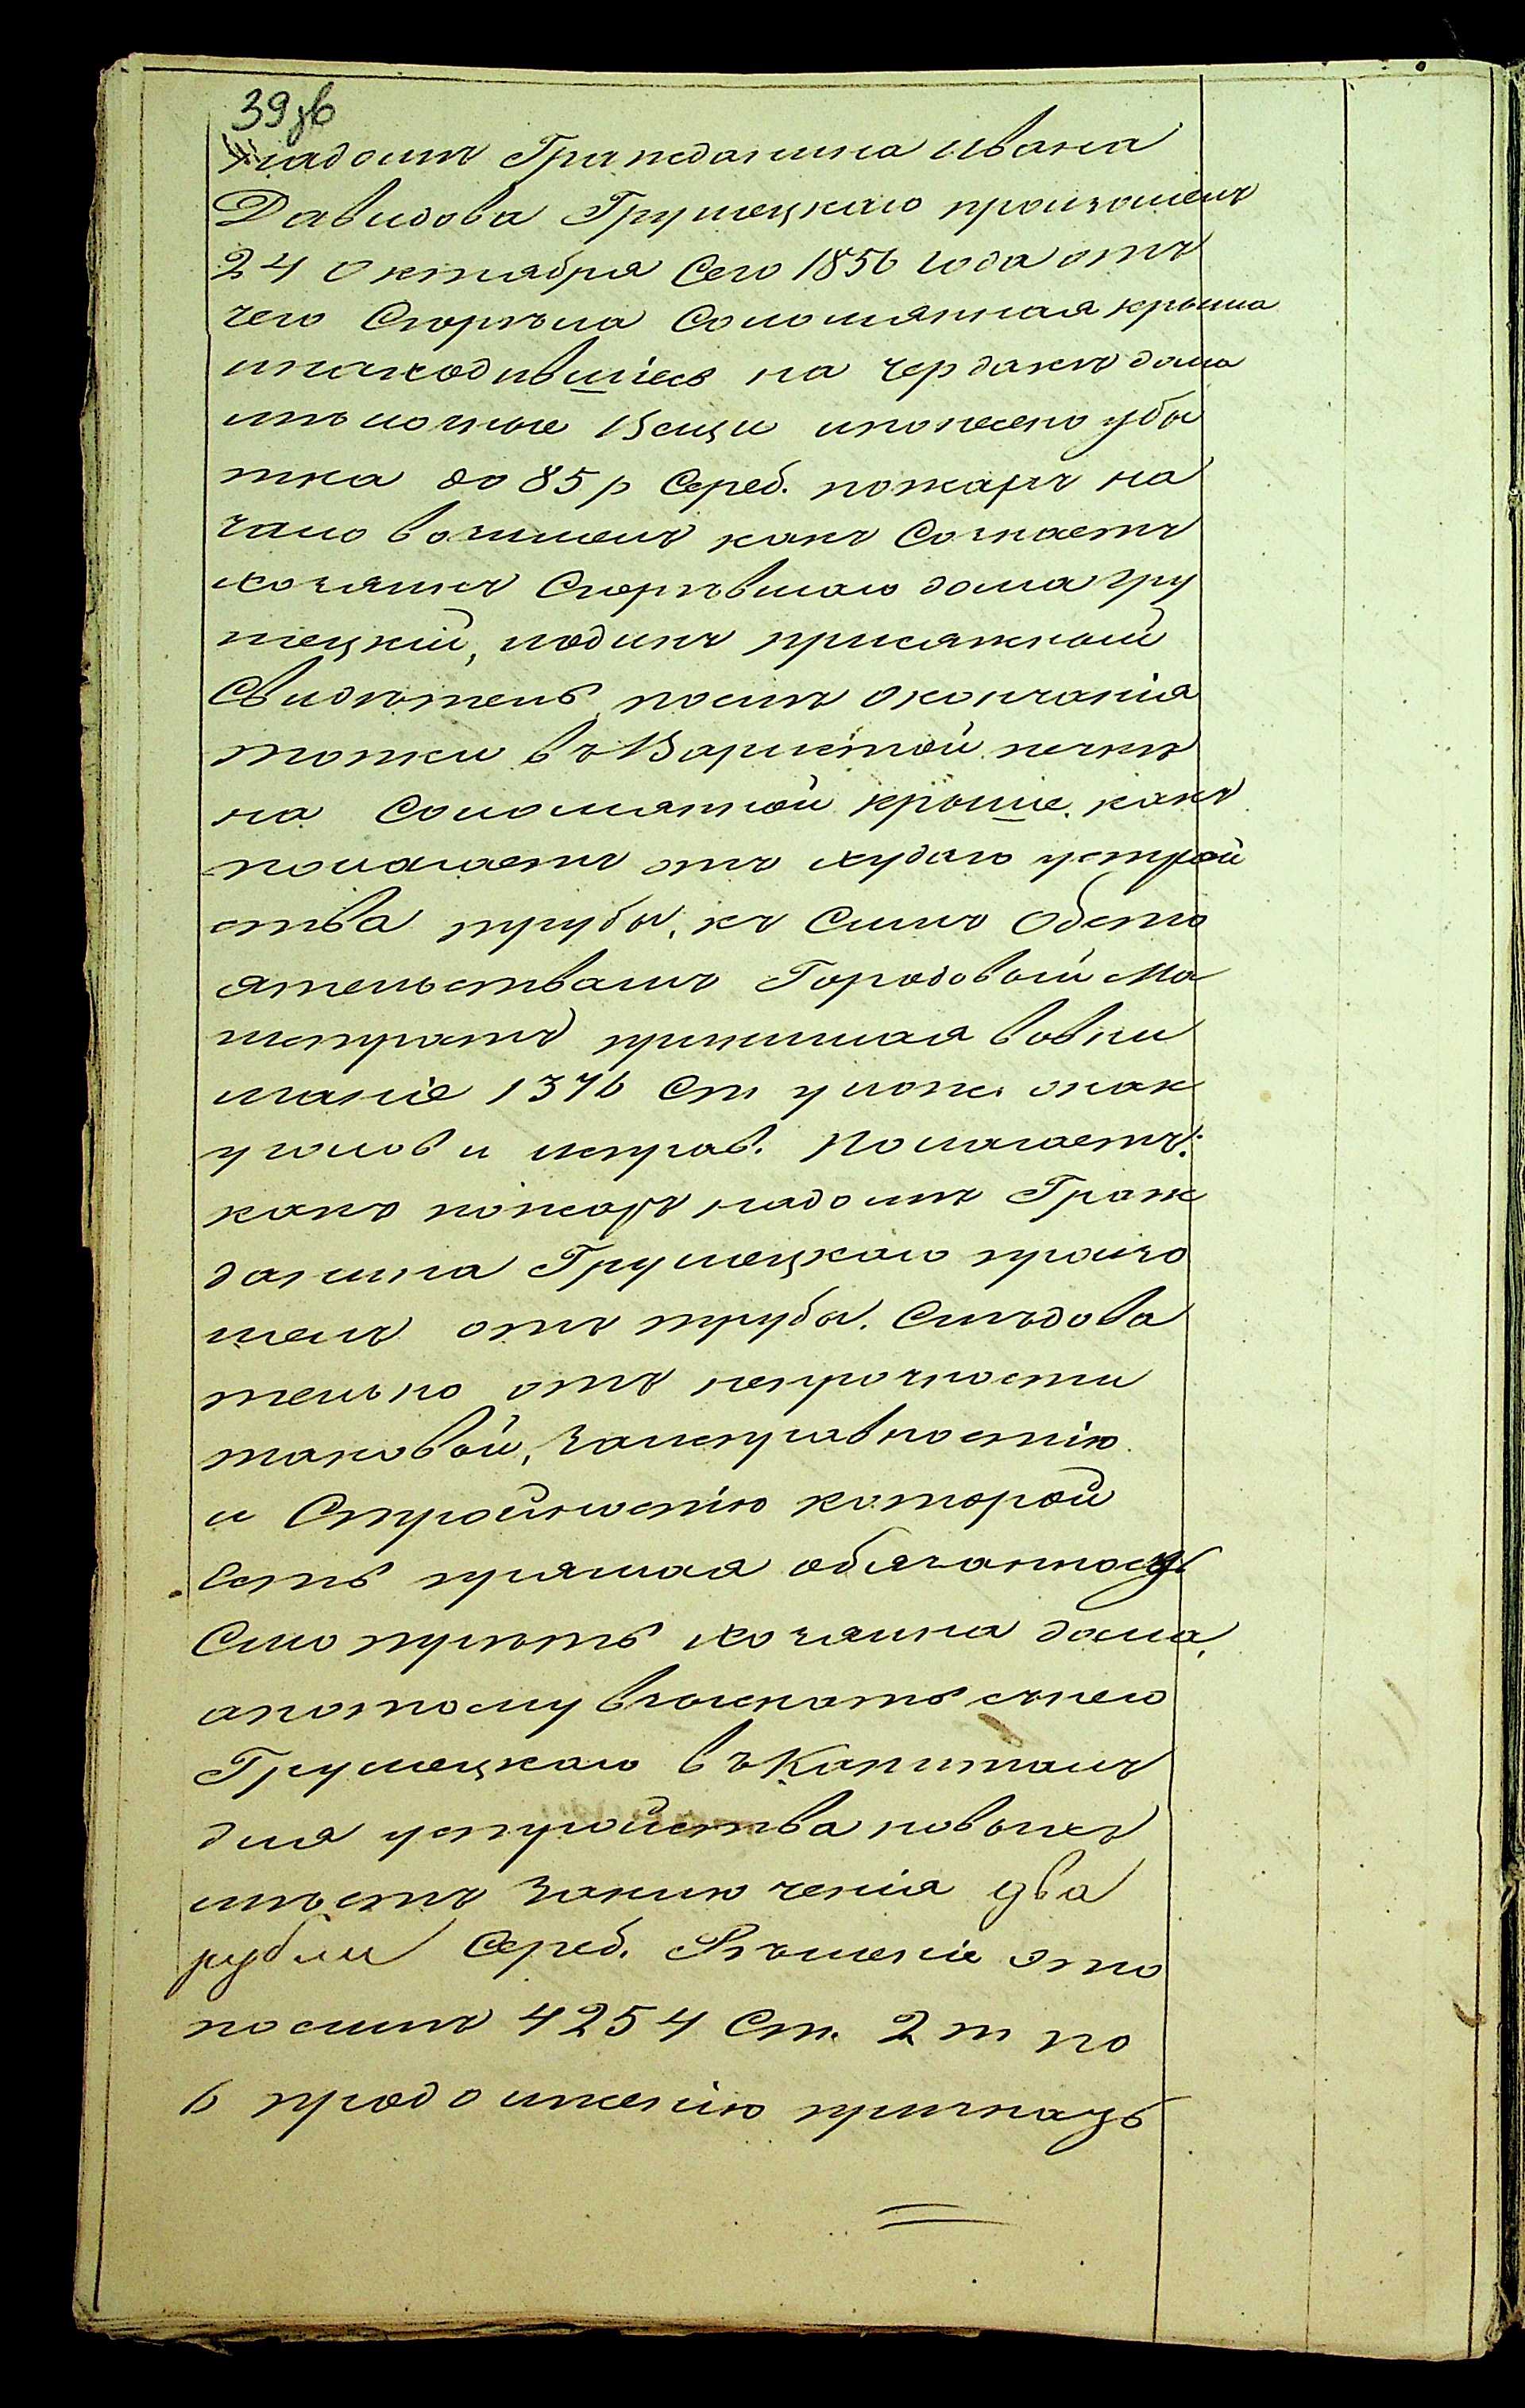 39зв
надомъ Гражданина Ивана
Давидова Грушецкаго произошелъ
24 Октября Сего 1856 года отъ
чего Сгорѣла Соломянная крыша
инаходившіесь на чердакѣ дома
мѣлочные Вещи ипонесено убы
тка до 85 р Сереб. пожаръ на
чало возимелъ какъ Сознаетъ
хозяинъ Сгорѣвшаго дома Гру
шецкій, иодинъ присяжный
Свидѣтель, послѣ окончанія
топки въВаристой печкѣ
на Соломянной крыше. какъ
полагаетъ отъ худаго устрой
ства трубы, къ Симъ Обсто
ятельствамъ Городовый Ма
гистратъ принимая вовни
маніе 1376 Ст улож. онак
уголов и исправ. Полагаетъ:
какъ пожаръ надомъ Граж
данина Грушецкаго произо
шелъ отъ трубы. Слѣдова
тельно отъ непрочности
таковой, заисправностію
и Стройностію которой
Есть прямая обязанность
Смотрѣть хозяина дома,
апотому взыскать снего
Грушецкаго въ Капиталъ
для устройства новыхъ
мѣстъ Заключенія два
рубли Сереб. Рѣшеніе это
посилѣ 4254 Ст. 2 т по
6 продолженію признать